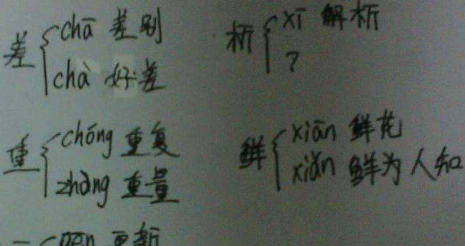 差 chā 差别
chà 好差
析 xī 解析
?
重 chóng 重复
zhòng 重量
鲜 xiān 鲜花
xiǎn 鲜为人知
更新